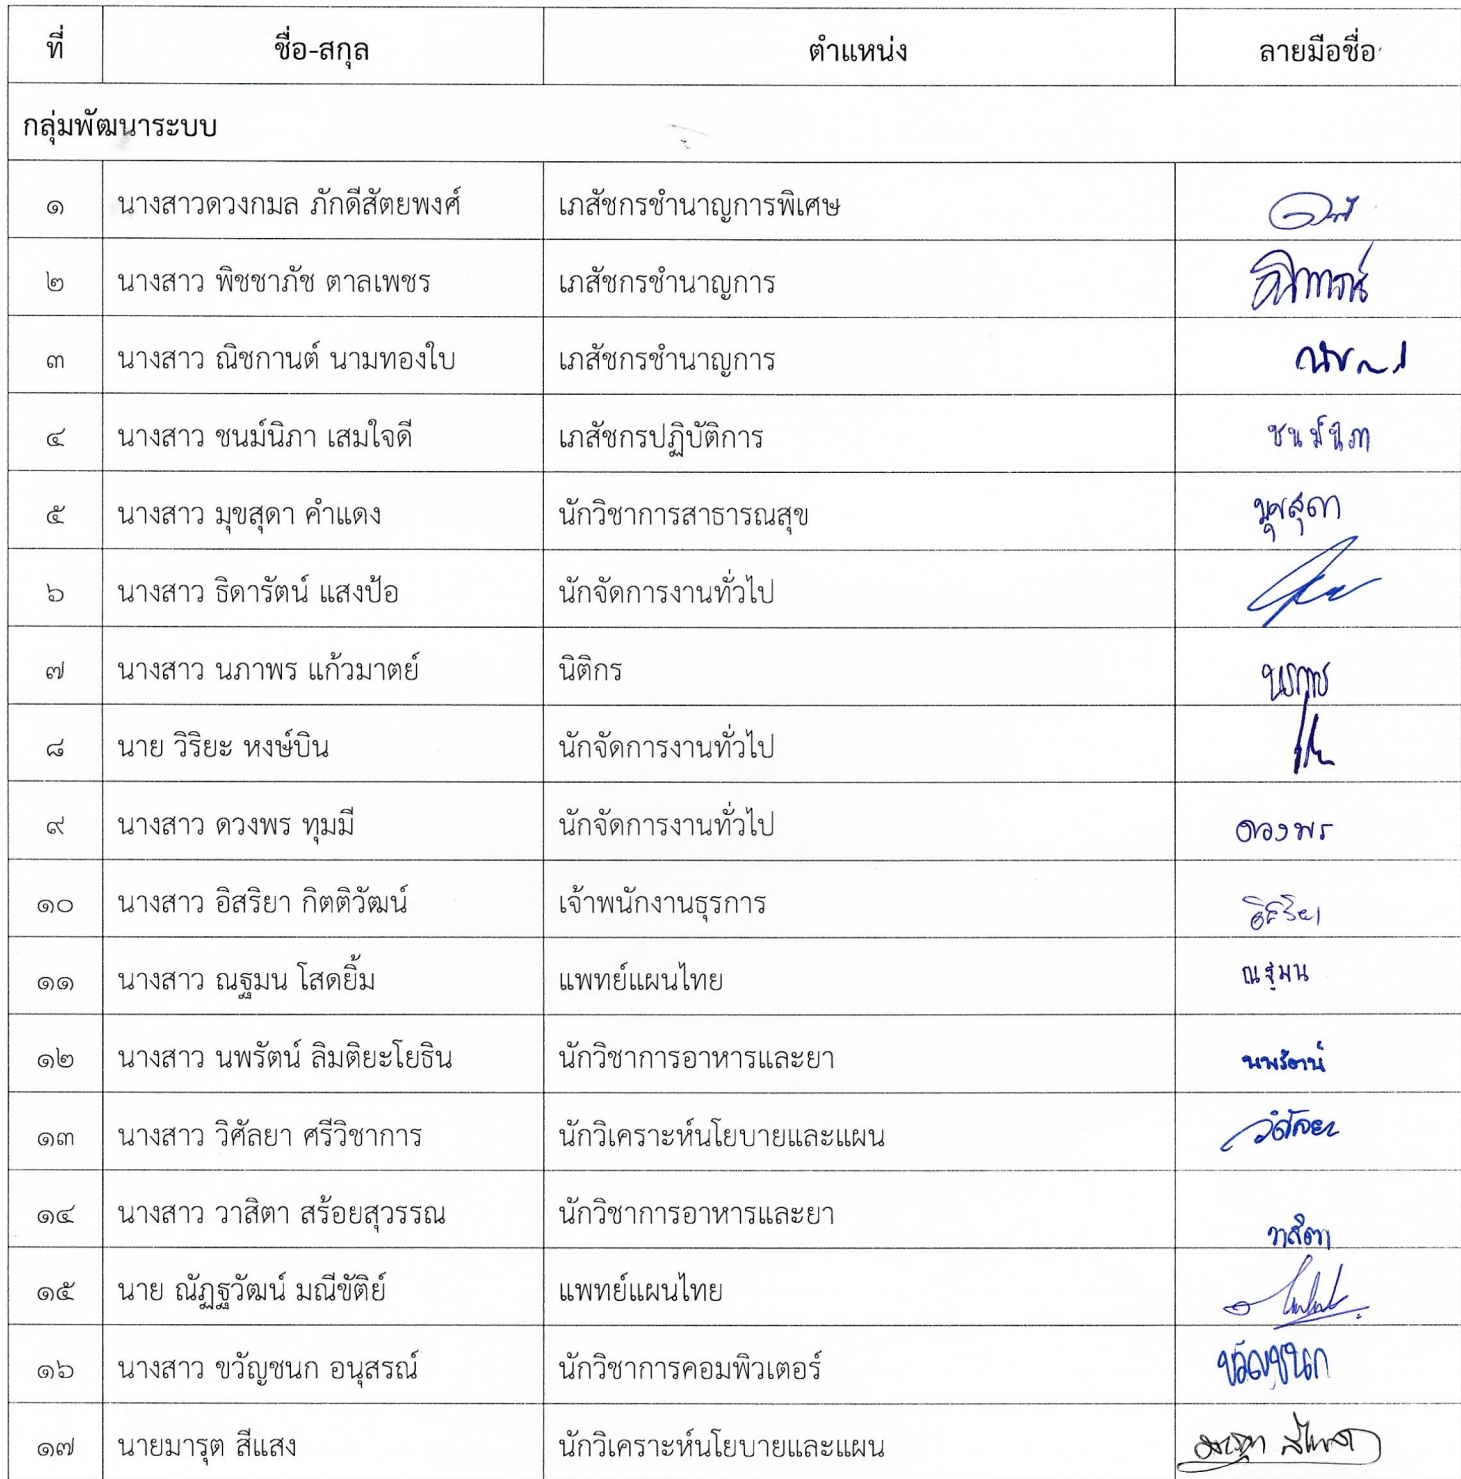 ที่ ชื่อ-สกุล ตำแหน่ง ลายมือชื่อ
กลุ่มพัฒนาระบบ
๑ นางสาวดวงกมล ภักดีสัตยพงศ์ เภสัชกรชำนาญการพิเศษ
๒ นางสาว พิชชาภัช ตาลเพชร เภสัชกรชำนาญการ
๓ นางสาว ณิชกานต์ นามทองใบ เภสัชกรชำนาญการ
๔ นางสาว ชนม์นิภา เสมใจดี เภสัชกรปฏิบัติการ ชนม์นิภา
๕ นางสาว มุขสุดา คำแดง นักวิชาการสาธารณสุข มุขสุดา
๖ นางสาว ธิดารัตน์ แสงป้อ นักจัดการงานทั่วไป
๗ นางสาว นภาพร แก้วมาตย์ นิติกร นภาพร
๘ นาย วิริยะ หงษ์บิน นักจัดการงานทั่วไป
๙ นางสาว ดวงพร ทุมมี นักจัดการงานทั่วไป ดวงพร
๑๐ นางสาว อิสริยา กิตติวัฒน์ เจ้าพนักงานธุรการ อิสริยา
๑๑ นางสาว ณฐมน โสดยิ้ม แพทย์แผนไทย ณฐมน
๑๒ นางสาว นพรัตน์ ลิมติยะโยธิน นักวิชาการอาหารและยา นพรัตน์
๑๓ นางสาว วิศัลยา ศรีวิชาการ นักวิเคราะห์นโยบายและแผน วิศัลยา
๑๔ นางสาว วาสิตา สร้อยสุวรรณ นักวิชาการอาหารและยา วาสิตา
๑๕ นาย ณัฏฐวัฒน์ มณีขัติย์ แพทย์แผนไทย
๑๖ นางสาว ขวัญชนก อนุสรณ์ นักวิชาการคอมพิวเตอร์ ขวัญชนก
๑๗ นายมารุต สีแสง นักวิเคราะห์นโยบายและแผน